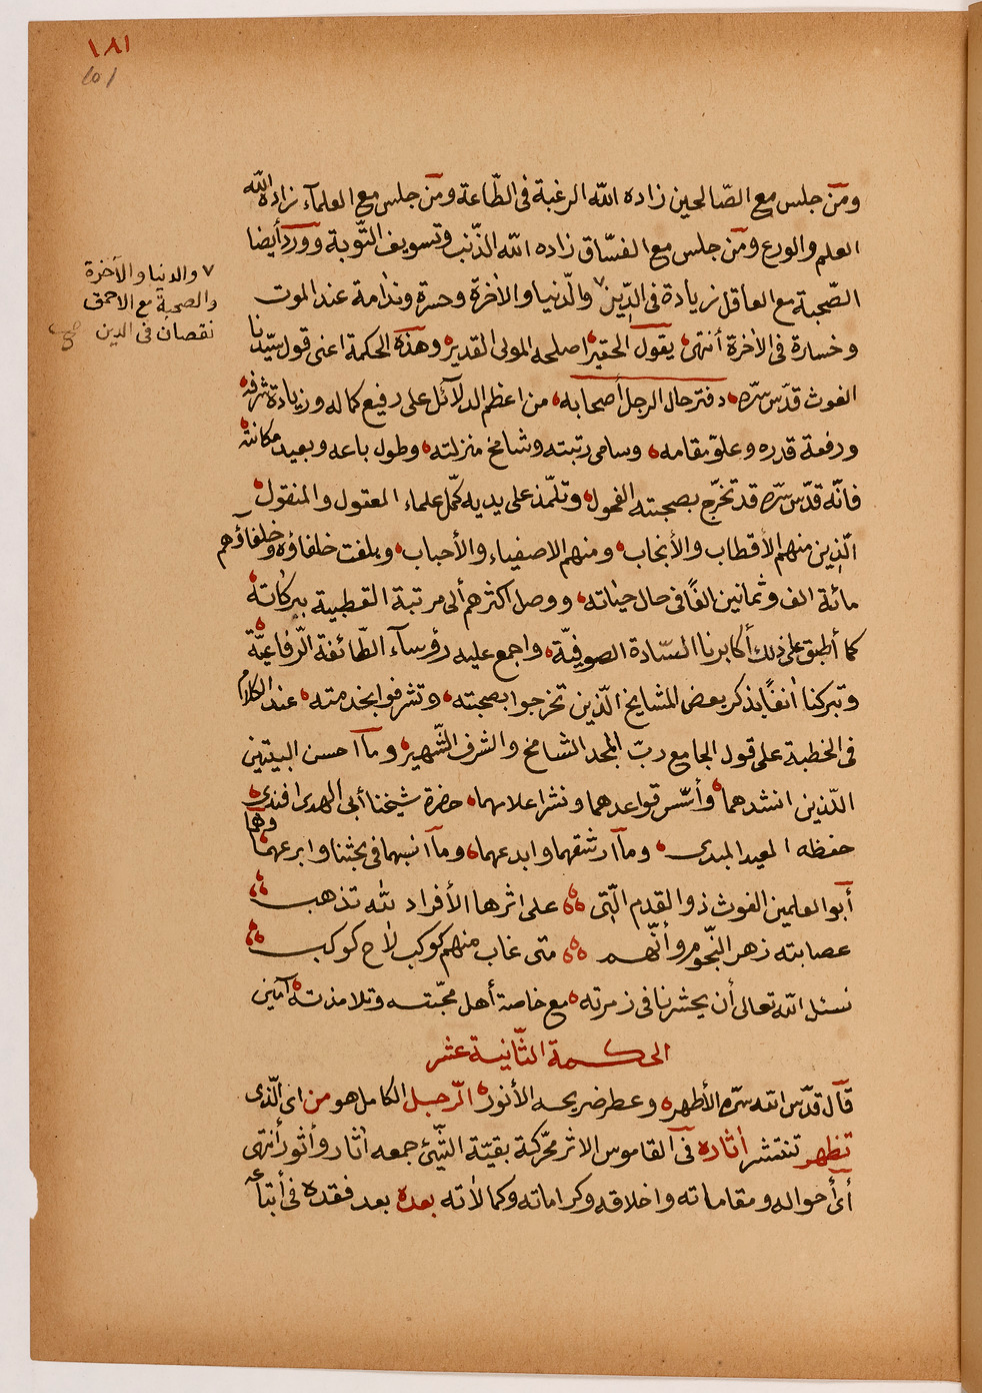 ١٨١
ومن جلس مع الصّالحين زاده الله الرغبة فى الطّاعة ومن جلس مع العلمآء زاده الله
العلم والورع ومن جلس مع الفسّاق زاده الله الذّنب وتسويف التّوبة وورد أيضا
الصّحبة مع العاقل زيادة فى الدّين ٧ والدّنيا والآخرة وحسرة وندامة عند الموت
وخسارة فى الآخرة أنتهى يقول الحقير اصلحه المولى القدير وهذه الحكمة اعنى قول سيّدنا
الغوث قدّس سرّه دفتر حال الرجل أصحابه من اعظم الدلآئل على رفيع كماله وزيادة شرفه
ورفعة قدره وعلوّ مقامه وسامى رتبته وشامخ منزلته وطول باعه وبعيد مكانته
فانّه قدّس سرّه قد تخرّج بصحبته الفحول وتلمّذ على يديه كمّل علماء المعقول والمنقول
الّذين منهم الأقطاب والأنجاب ومنهم الاصفياء والأحباب وبلغت خلفاؤه وخلفاؤهم
مائة الف وثمانين الفًا فى حال حياته ووصل اكثرهم ألى مرتبة القطبية ببركاته
كما أطبق على ذلك أكابرنا السّادة الصوفيّة واجمع عليه رؤسآء الطّائفة الرّفاعيّة
وتبركنا انفًا بذكر بعض المشايخ الّذين تخرجوا بصحبته وتشرفوا بخدمته عند الكلام
فى الخطبة على قول الجامع ربّ المجد الشامخ والشرف الشّهير ومآ احسن البيتين
اللّذين انشدهما وأسّس قواعدهما ونشر اعلامهما حضرة شيخنا أبى الهدى افندى
حفظه المعيد المبدى ومآ ارشقهما وابدعهما ومآ انسبهما فى بحثنا وابرعهما وهما
أبو العلمين الغوث ذو القدم الّتى على اثرها الأفراد لله تذهب
عصابته زهر النّجوم وأنّهم متى غاب منهم كوكب لاح كوكب
نسئل الله تعالى أن يحشرنا فى زمرته مع خاصة أهل محبّته وتلامذته آمين
الحكمة الثّانية عشر
قال قدّس الله سرّه الأطهر وعطر ضريحه الأنور الرّجل الكامل هو من اى الّذى
تظهر تنتشر اثاره فى القاموس الاثر محرّكة بقيّة الشّئ جمعه اثار وأثور أنتهى
أى أحواله ومقاماته واخلاقه وكراماته وكمالاته بعده بعد فقده فى أتباعه
٧ والدنيا والآخرة
والصحبة مع الاحمق
نقصان فى الدين
صح